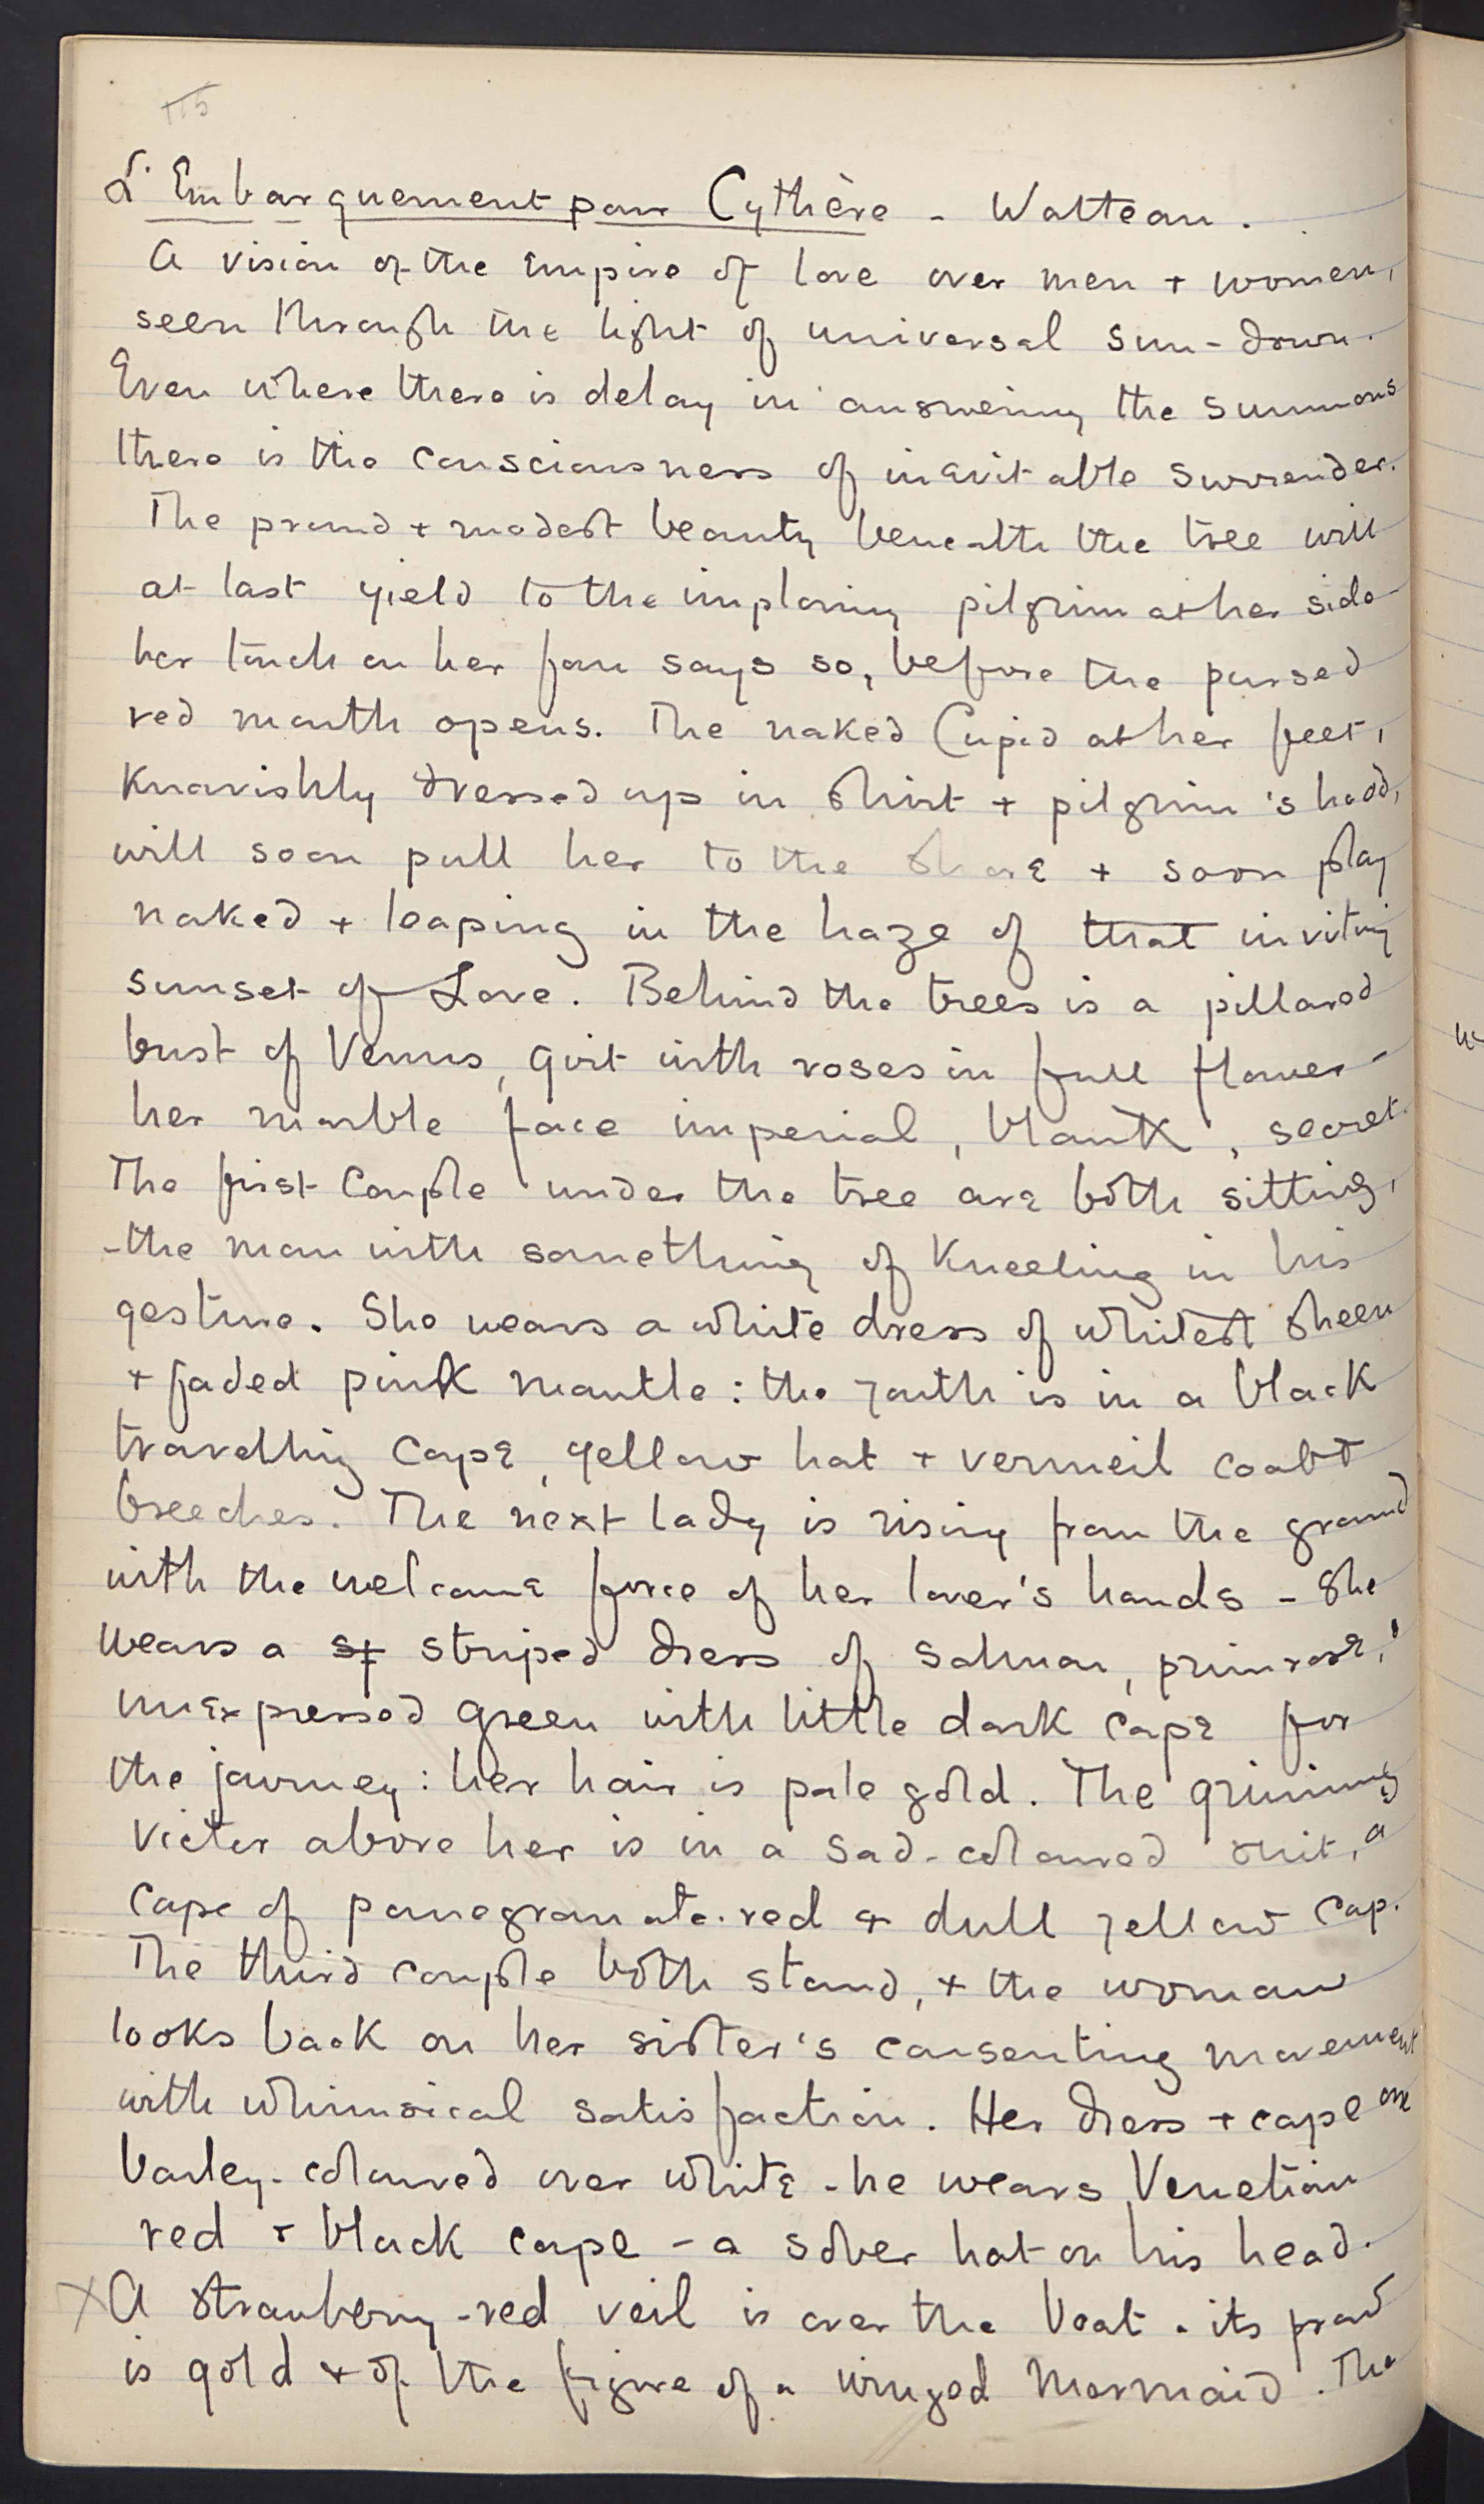 115
L'Embarquement pour Cythère - Watteau.
A vision of the Empire of love over men + women,
seen through the light of universal sun-down.
Even where there is delay in answering the summons
there is the consciousness of inevitable surrender.
The proud + modest beauty beneath the tree will
at last yield to the imploring pilgrim at her side
her touch on her fan says so, before the pursed
red mouth opens. The naked Cupid at her feet,
Knavishly dressed up in shirt + pilgrim's hood,
will soon pull her to the shore + soon play
naked + leaping in the haze of that inviting
sunset of Love. Behind the trees is a pillared
bust of Venus, girt with roses in full flower -
her marble face imperial, blank, secret.
The first Couple under the tree are both sitting,
- the man with something of Kneeling in his
gesture. She wears a white dress of whitest sheen
+ faded pink mantle: the youth is in a black
travelling cape, yellow hat + vermeil coat
breeches. The next lady is rising from the ground
with the welcome force of her lover's hands - She
wears a st striped dress of salmon, primrose,
unexpressed green with little dark cape for
the journey: her hair is pale gold. The grinning
Victor above her is in a sad-coloured suit, a
cape of pomegranate-red & dull yellow cap.
The third couple both stand, + the woman
looks back on her sister's consenting movement
with whimsical satisfaction. Her dress + cape are
barley-coloured over white - he wears Venetian
red + black cape - a sober hat on his head.
X A strawberry-red veil is over the boat - its prow
is gold & of the figure of a winged Mermaid. The